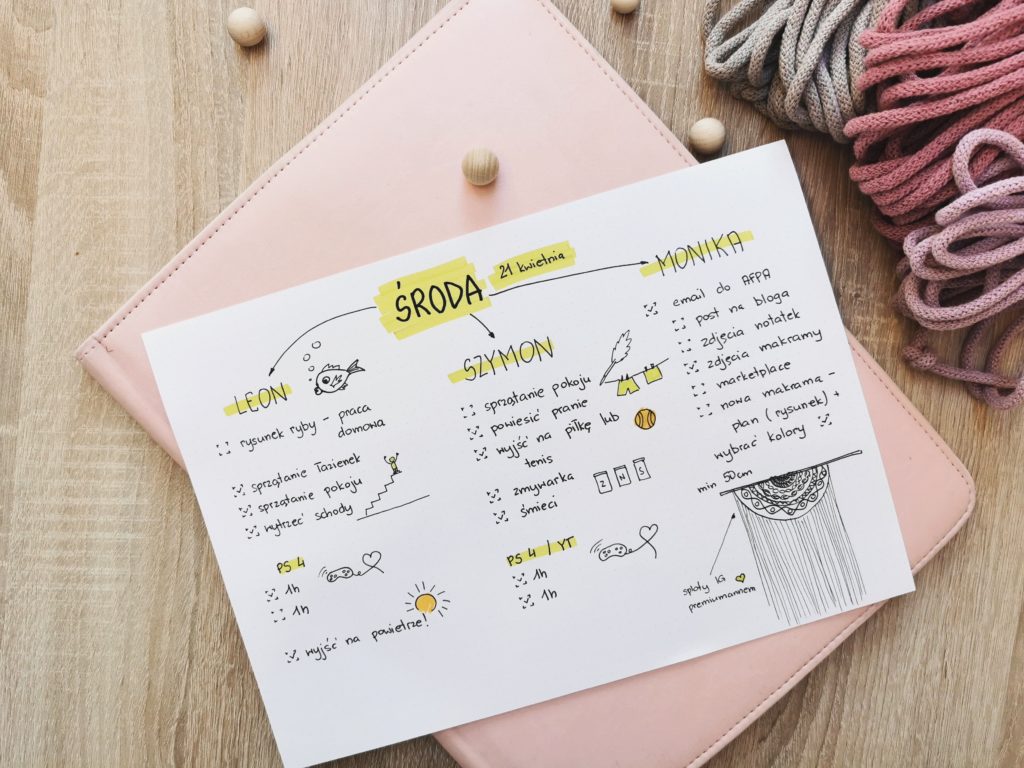 ŚRODA
21 kwietnia
LEON
rysunek ryby - praca
domowa
sprzątanie łazienek
sprzątanie pokoju
wytrzeć schody
PS 4
1h
1h
wyjść na powietrze!
SZYMON
sprzątanie pokoju
powiesić pranie
wyjść na piłkę lub
tenis
zmywarka
śmieci
Z N S
PS 4 / YT
1h
1h
MONIKA
email do AFPA
post na bloga
zdjęcia notatek
zdjęcia makramy
marketplace
nowa makrama -
plan (rysunek) +
wybrać kolory
min 50cm
sploty IG
premiumannem